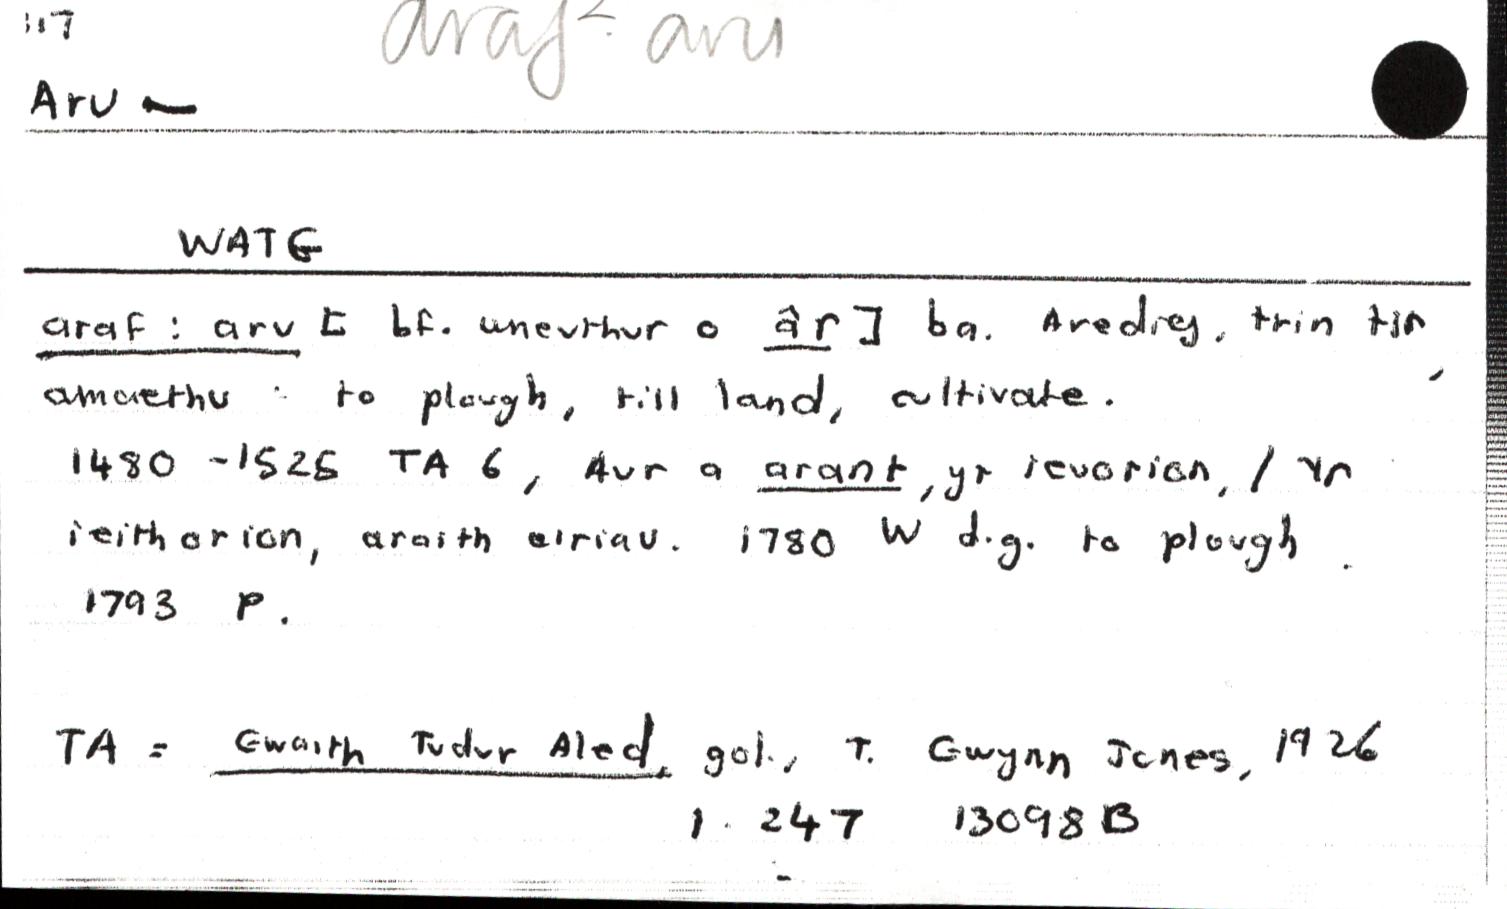 117
araf². aru
Aru –
WATG
araf : aru [ bf. wneuthur o âr ] ba. Aredig, trin tir,
amaethu : to plough, till land, cultivate.
1480 -1525 TA 6, Aur a arant, yr ieuorion, / Yn
ieithorion, araith eiriau. 1780 W d.g. to plough.
1793 P.
TA = Gwaith Tudur Aled, gol., T. Gwynn Jones, 1926
1. 247 13098 B